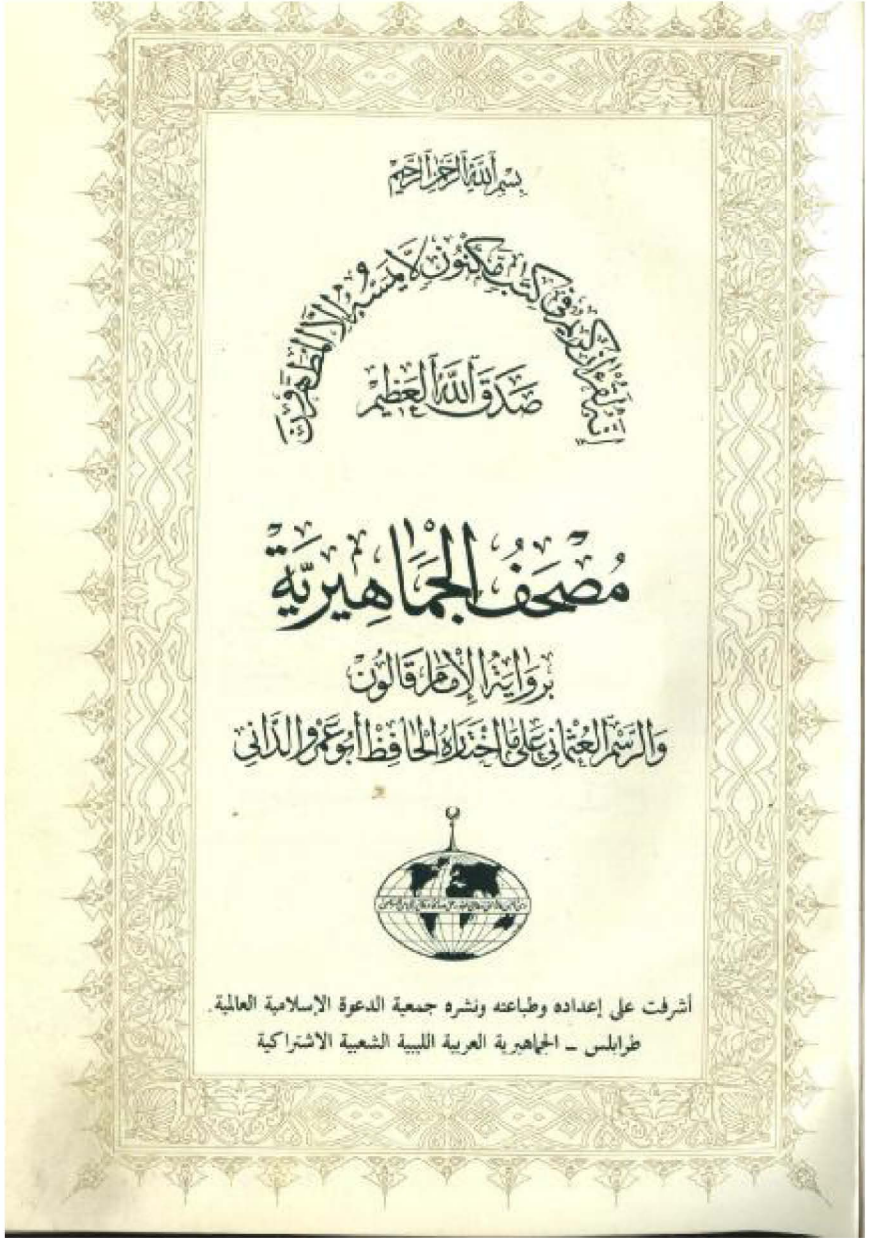 بِسْمِ ٱللَّهِ ٱلرَّحْمَٰنِ ٱلرَّحِيمِ
إِنَّهُ لَقُرْءَانٌ كَرِيمٌ فِي كِتَٰبٍ مَّكْنُونٍ لَّا يَمَسُّهُ إِلَّا ٱلْمُطَهَّرُونَ
صَدَقَ ٱللَّهُ ٱلْعَظِيمُ
مُصْحَفُ الْجَمَاهِيرِيَّةِ
بِرِوَايَةِ الْإِمَامِ قَالُونَ
وَالرَّسْمِ الْعُثْمَانِي عَلَى مَا اخْتَارَهُ الْحَافِظُ أَبُو عَمْرٍو الدَّانِي
أشرفت على إعداده وطباعته ونشره جمعية الدعوة الإسلامية العالمية.
طرابلس ـ الجماهيرية العربية الليبية الشعبية الاشتراكية